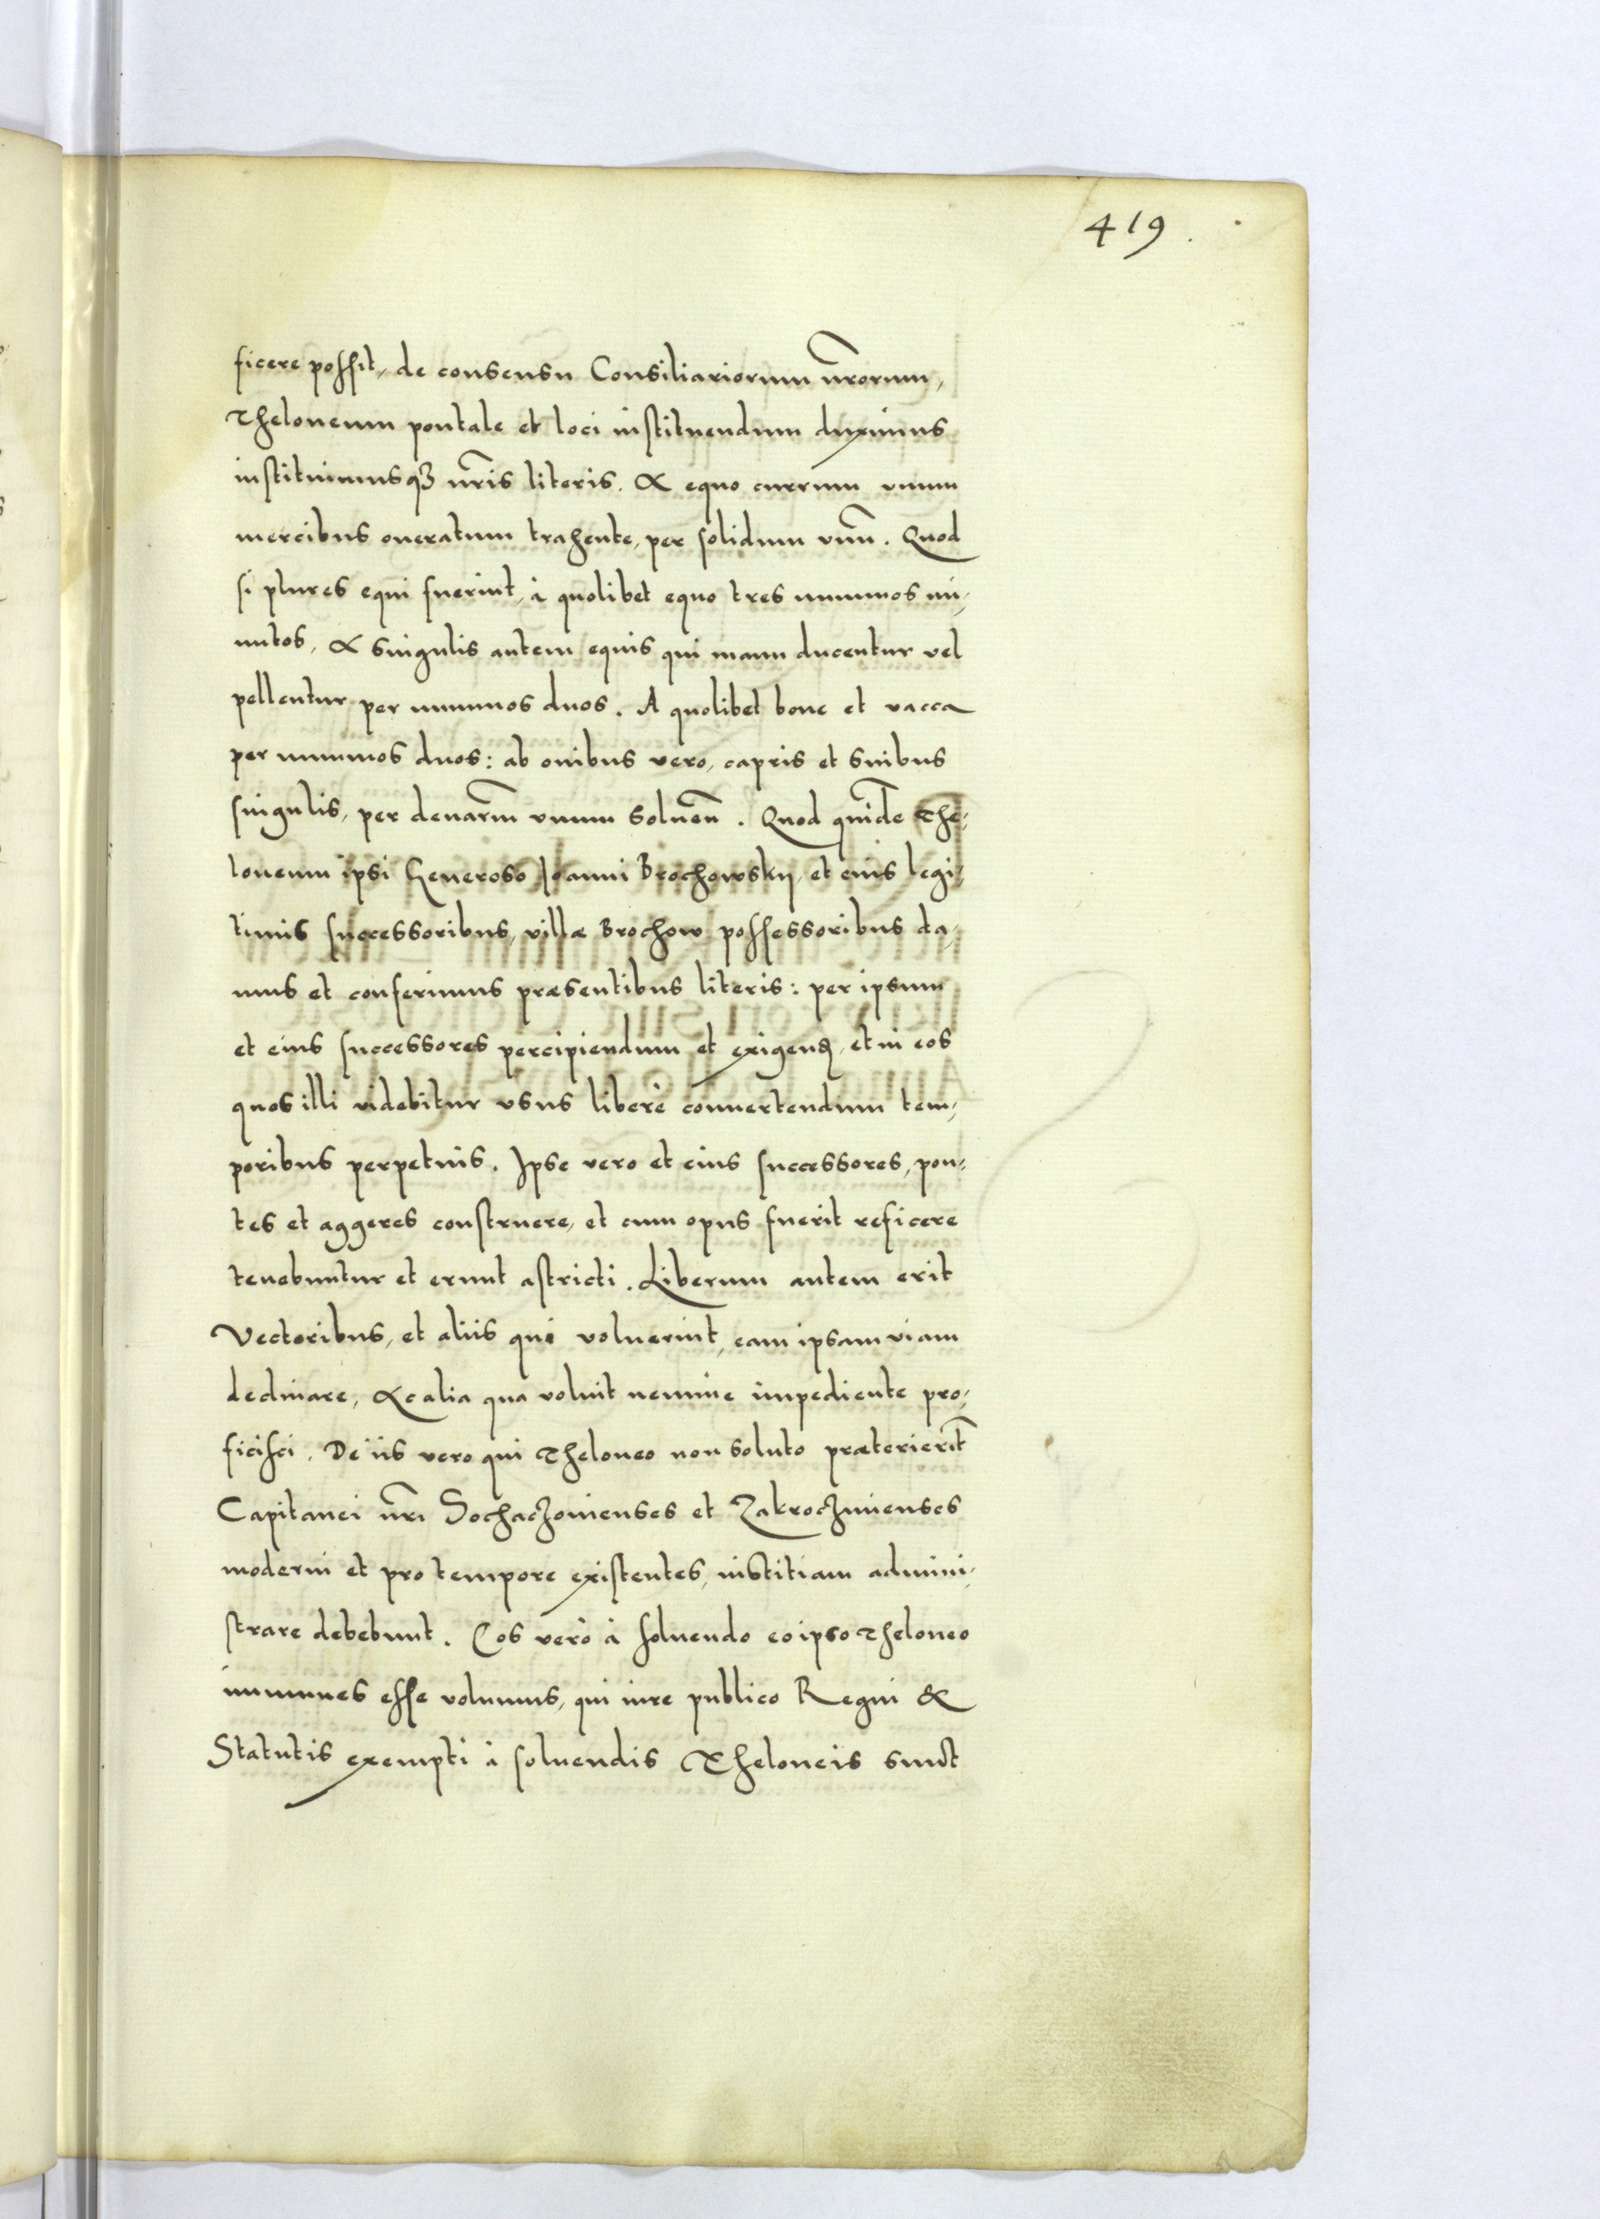 419.
ficere possit, de consensu Consiliariorum nrorum,
Theloneum pontale et loci instituendum duximus
instituimusq3 nris literis. A equo currum unum
mercibus oneratum trahente, per solidum unu. Quod
si plures equi fuerint, à quolibet equo tres nummos mi-
nutos, A singulis autem equis qui manu ducentur vel
pellentur per nummos duos. A quolibet boue et vacca
per nummos duos: ab ouibus vero, capris et suibus
singulis, per denarm unum soluen. Quod quide The-
loneum ipsi Generoso Joanni Brochowsky, et eius legi-
timis successoribus, villæ Brochow possessoribus da-
mus et conferimus præsentibus literis: per ipsum
et eius successores percipiendum et exigend, et in eos
quos illi videbitur usus liberè conuertendum tem-
poribus perpetuis. Ipse vero et eius successores, pon-
tes et aggeres construere, et cum opus fuerit reficere
tenebuntur et erunt astricti. Liberum autem erit
Vectoribus, et aliis qui voluerint, eam ipsam viam
declinare, Ac alia qua voluit nemine impediente pro-
ficisci. De iis vero qui Theloneo non soluto præterierit
Capitanei nri Sochaczouienses et Zakroczimienses
moderni et pro tempore existentes, iustitiam admini-
strare debebunt. Eos verò à soluendo eo ipso Theloneo
immunes esse volumus, qui iure publico Regni &
Statutis exempti à soluendis Theloneis sunt